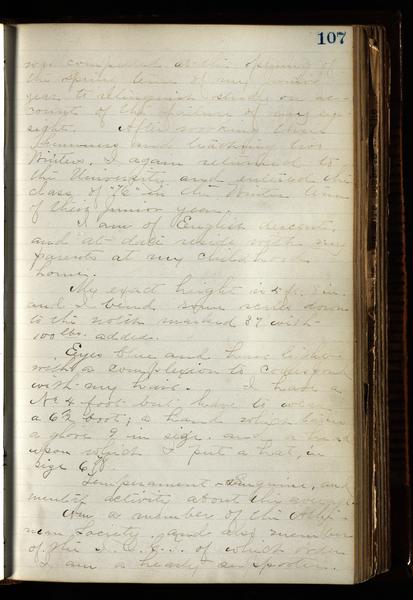 107
was compelled at the opening of
the Spring term of my Junior
year to relinquish study on ac-
count of the failure of my eye
sight. After working three
Summers and teaching two
Winters, I again returned to
the University and entered the
class of "76" in the Winter term
of their Junior year.
I am of English descent,
and at date reside with my
parents at my childhood
home.
My exact height is 5 ft. 8 in.
and I bend some scales down
to the notch marked 37 with
100 lbs. added.
Eyes blue and hair light
with a complexion to correspond
with my hair. I have a
No 4 foot but have to wear
a 6½ boot; a hand which
a glove 9 in size. and a head
upon which I put a hat, in
size 6⅞.
Temperament - Sanguine, and
mental activity about the average.
Am a member of the
Society, and also member
of the I. O. G. of which order
I am a hearty supporter.